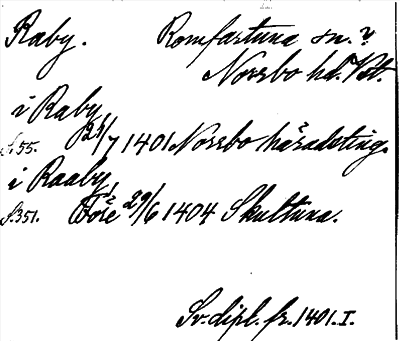 Raby. Romfartuna sn. ?
Norrbo hd. Vstm.
i Raby
S. 55. 25/7 1401 Norrbo häradsting.
i Raaby
S. 351. Före 29/6 1404 Skultuna.
Sv. dipl. fr. 1401. I.